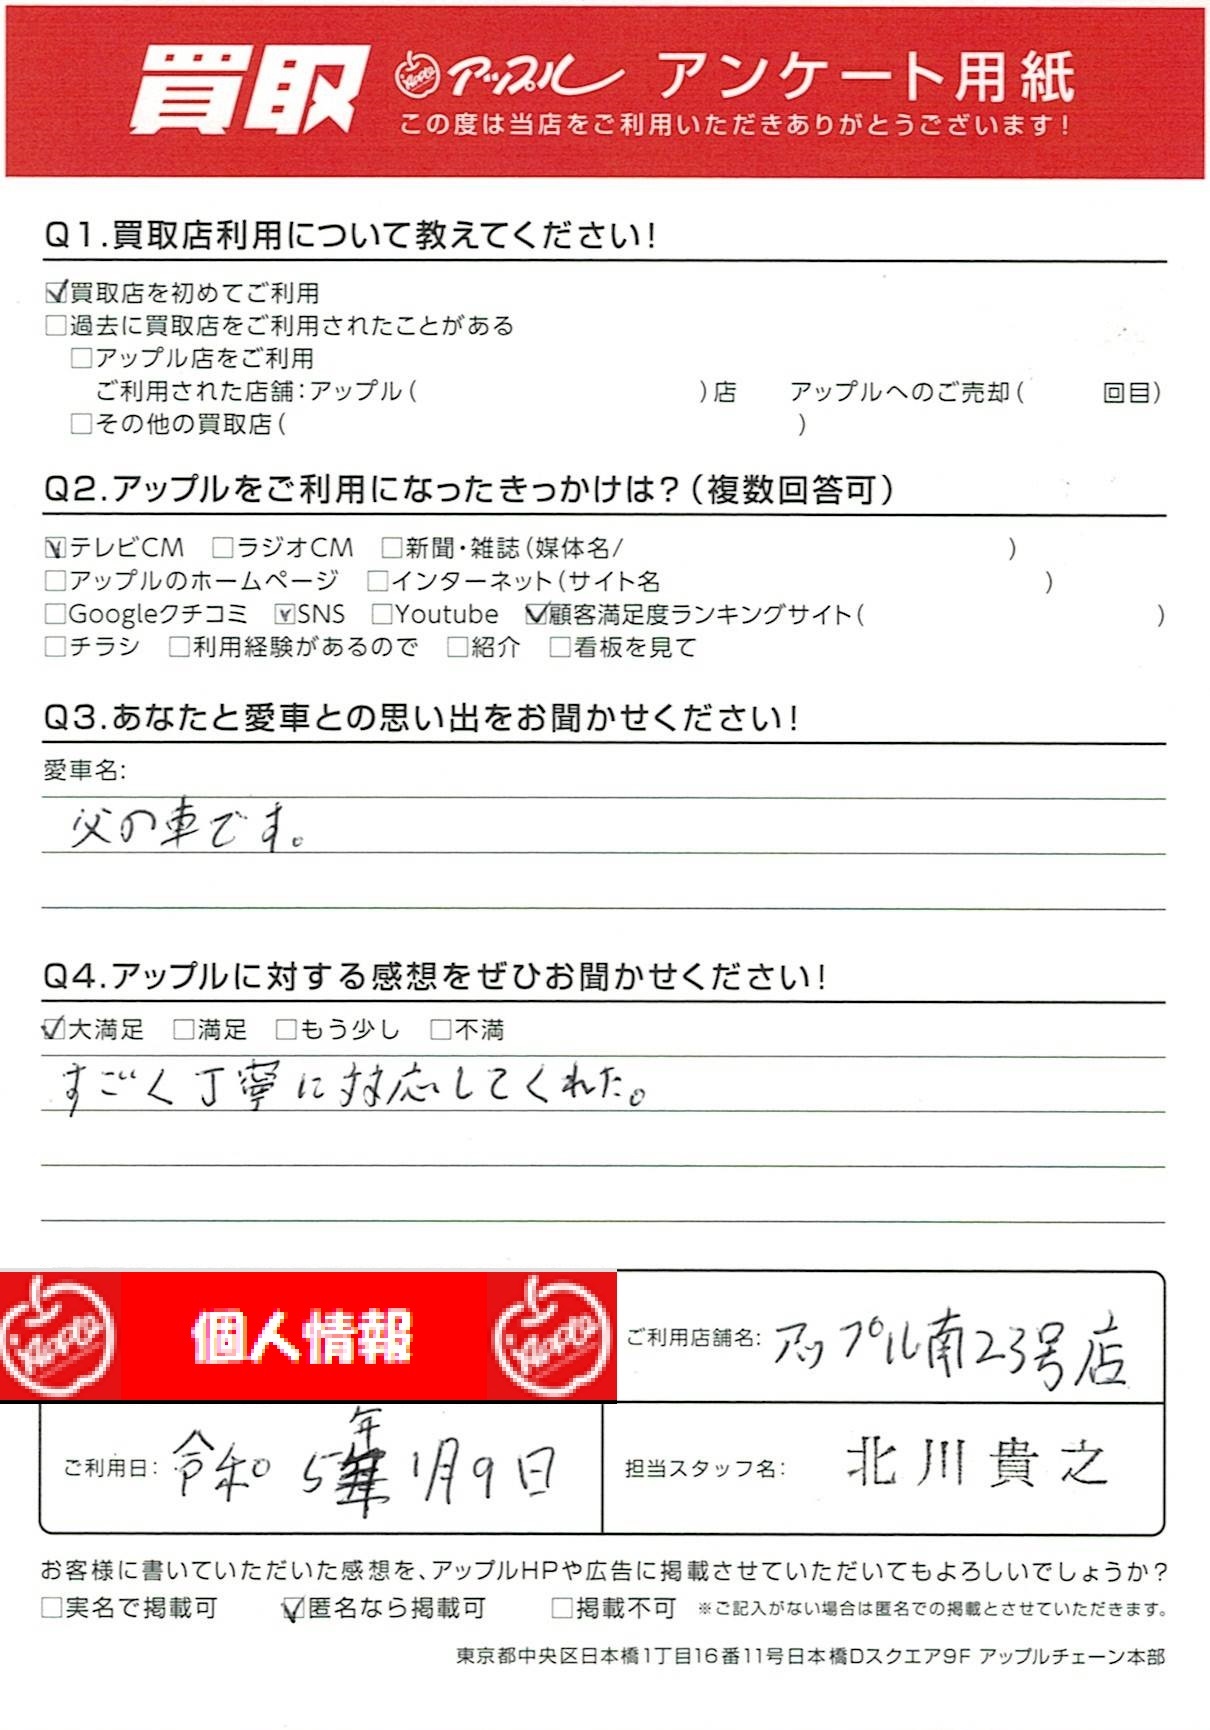 買取 Apple アップル アンケート用紙
この度は当店をご利用いただきありがとうございます！
Q1.買取店利用について教えてください！
☑買取店を初めてご利用
□過去に買取店をご利用されたことがある
□アップル店をご利用
ご利用された店舗：アップル（ ）店 アップルへのご売却（ 回目）
□その他の買取店（ ）
Q2.アップルをご利用になったきっかけは？（複数回答可）
☑テレビCM □ラジオCM □新聞・雑誌（媒体名/ ）
□アップルのホームページ □インターネット（サイト名 ）
□Googleクチコミ ☑SNS □Youtube ☑顧客満足度ランキングサイト（ ）
□チラシ □利用経験があるので □紹介 □看板を見て
Q3.あなたと愛車との思い出をお聞かせください！
愛車名：
父の車です。
Q4.アップルに対する感想をぜひお聞かせください！
☑大満足 □満足 □もう少し □不満
すごく丁寧に対応してくれた。
Apple 個人情報 Apple
ご利用店舗名：アップル南23号店
ご利用日：令和5年1月9日
担当スタッフ名：北川貴之
お客様に書いていただいた感想を、アップルHPや広告に掲載させていただいてもよろしいでしょうか？
□実名で掲載可 ☑匿名なら掲載可 □掲載不可 ※ご記入がない場合は匿名での掲載とさせていただきます。
東京都中央区日本橋1丁目16番11号日本橋Dスクエア9F アップルチェーン本部